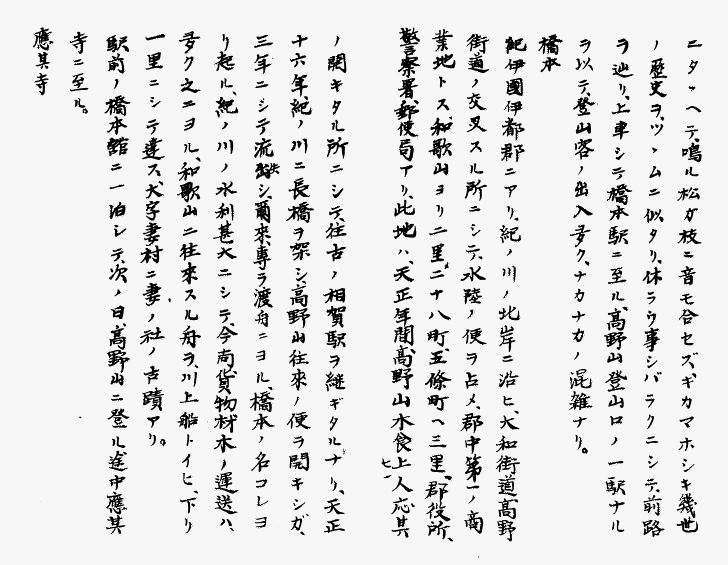 ニタツヘテ、鳴ル松ガ枝ニ音モ合セズギカマホシキ幾世
ノ歴史ヲ、ツヽムニ似タリ、休ラウ事シバラクニシテ、前路
ヲ辿リ、上車シテ橋本駅ニ至ル、高野山登山口ノ一駅ナル
ヲ以テ、登山客ノ出入多ク、ナカナカノ混雑ナリ。
橋本
紀伊國伊都郡ニアリ、紀ノ川ノ北岸ニ沿ヒ、大和街道高野
街道ノ交叉スル所ニシテ、水陸ノ便ヲ占メ、郡中第一ノ商
業地トス、和歌山ヨリ二里二十八町、五條町ヘ三里、郡役所、
警察署、郵便局アリ、此地ハ、天正年間高野山木食上人応其
ノ開キタル所ニシテ、往古ノ相賀駅ヲ継ギタルナリ、天正
十六年、紀ノ川ニ長橋ヲ架シ、高野山往來ノ便ヲ開キシガ、
三年ニシテ流失シ、爾來、專ラ渡舟ニヨル、橋本ノ名コレヨ
リ起ル、紀ノ川ノ水利甚大ニシテ、今尚貨物材木ノ運送ハ、
多ク之ニヨル、和歌山ニ往來スル舟ヲ、川上船トイヒ、下リ
一里ニシテ達ス、大字妻村ニ妻ノ社ノ古蹟アリ。
駅前ノ橋本舘ニ一泊シテ、次ノ日、高野山ニ登ル途中應其
寺ニ至ル。
應其寺